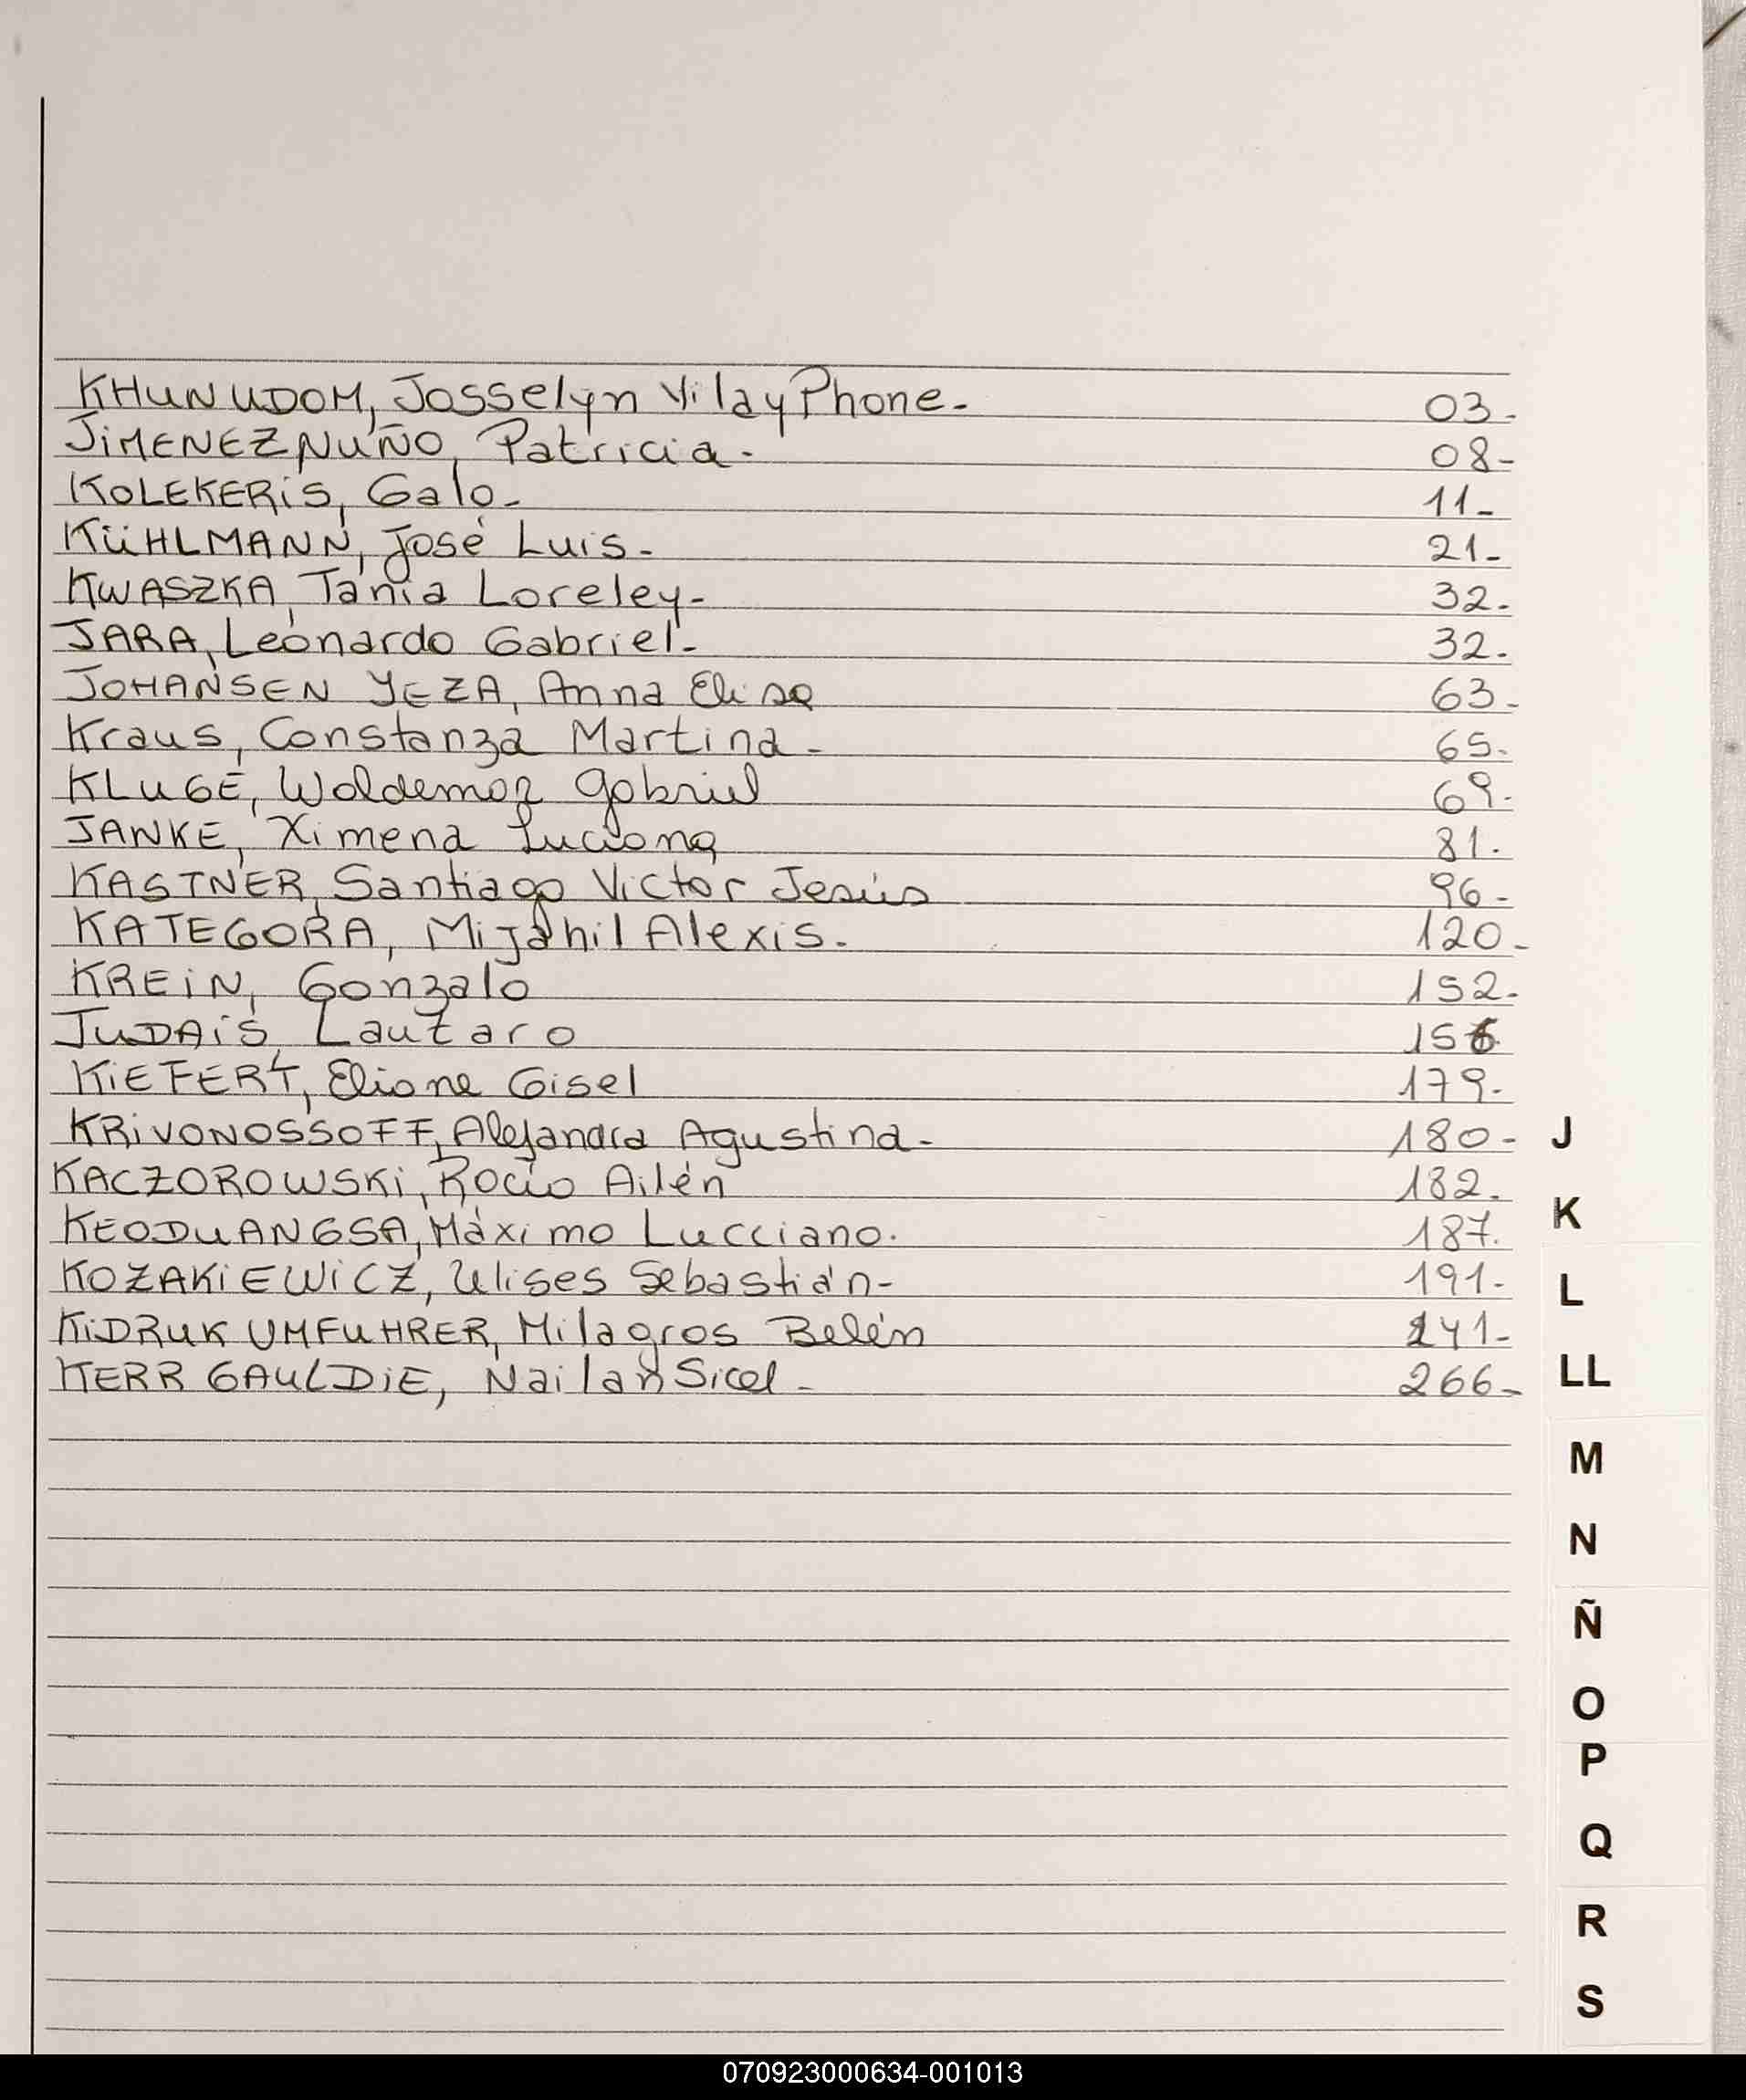 KHUNUDOM, Josselyn VilayPhone. 03.
JiMENEZ NUÑO, Patricia. 08-
KOLEKERiS, Galo. 11-
KÜHLMANN, José Luis. 21-
KWASZKA, Tania Loreley- 32.
JARA, Leonardo Gabriel. 32.
JOHANSEN YEZA, Anna Elisa 63.
Kraus, Constanza Martina. 65.
KLUGE, Woldemar Gabriel 69.
JANKE, Ximena Luciana 81.
KASTNER, Santiago Victor Jesús 96-
KATEGORA, Mijahil Alexis. 120-
KREiN, Gonzalo 152.
JUDAiS Lautaro 156
KiEFERT, Eliane Gisel 179.
KRiVONOSSOFF, Alejandra Agustina- 180- J
KACZOROWSKi, Rocío Ailén 182.
K
KEODUANGSA, Máximo Lucciano. 187.
KOZAKiEWiCZ, Ulises Sebastián- 191- L
KiDRUK UMFUHRER, Milagros Belén 241-
KERR GAULDiE, Nailan 266- LL
M
N
Ñ
O
P
Q
R
S
070923000634-001013